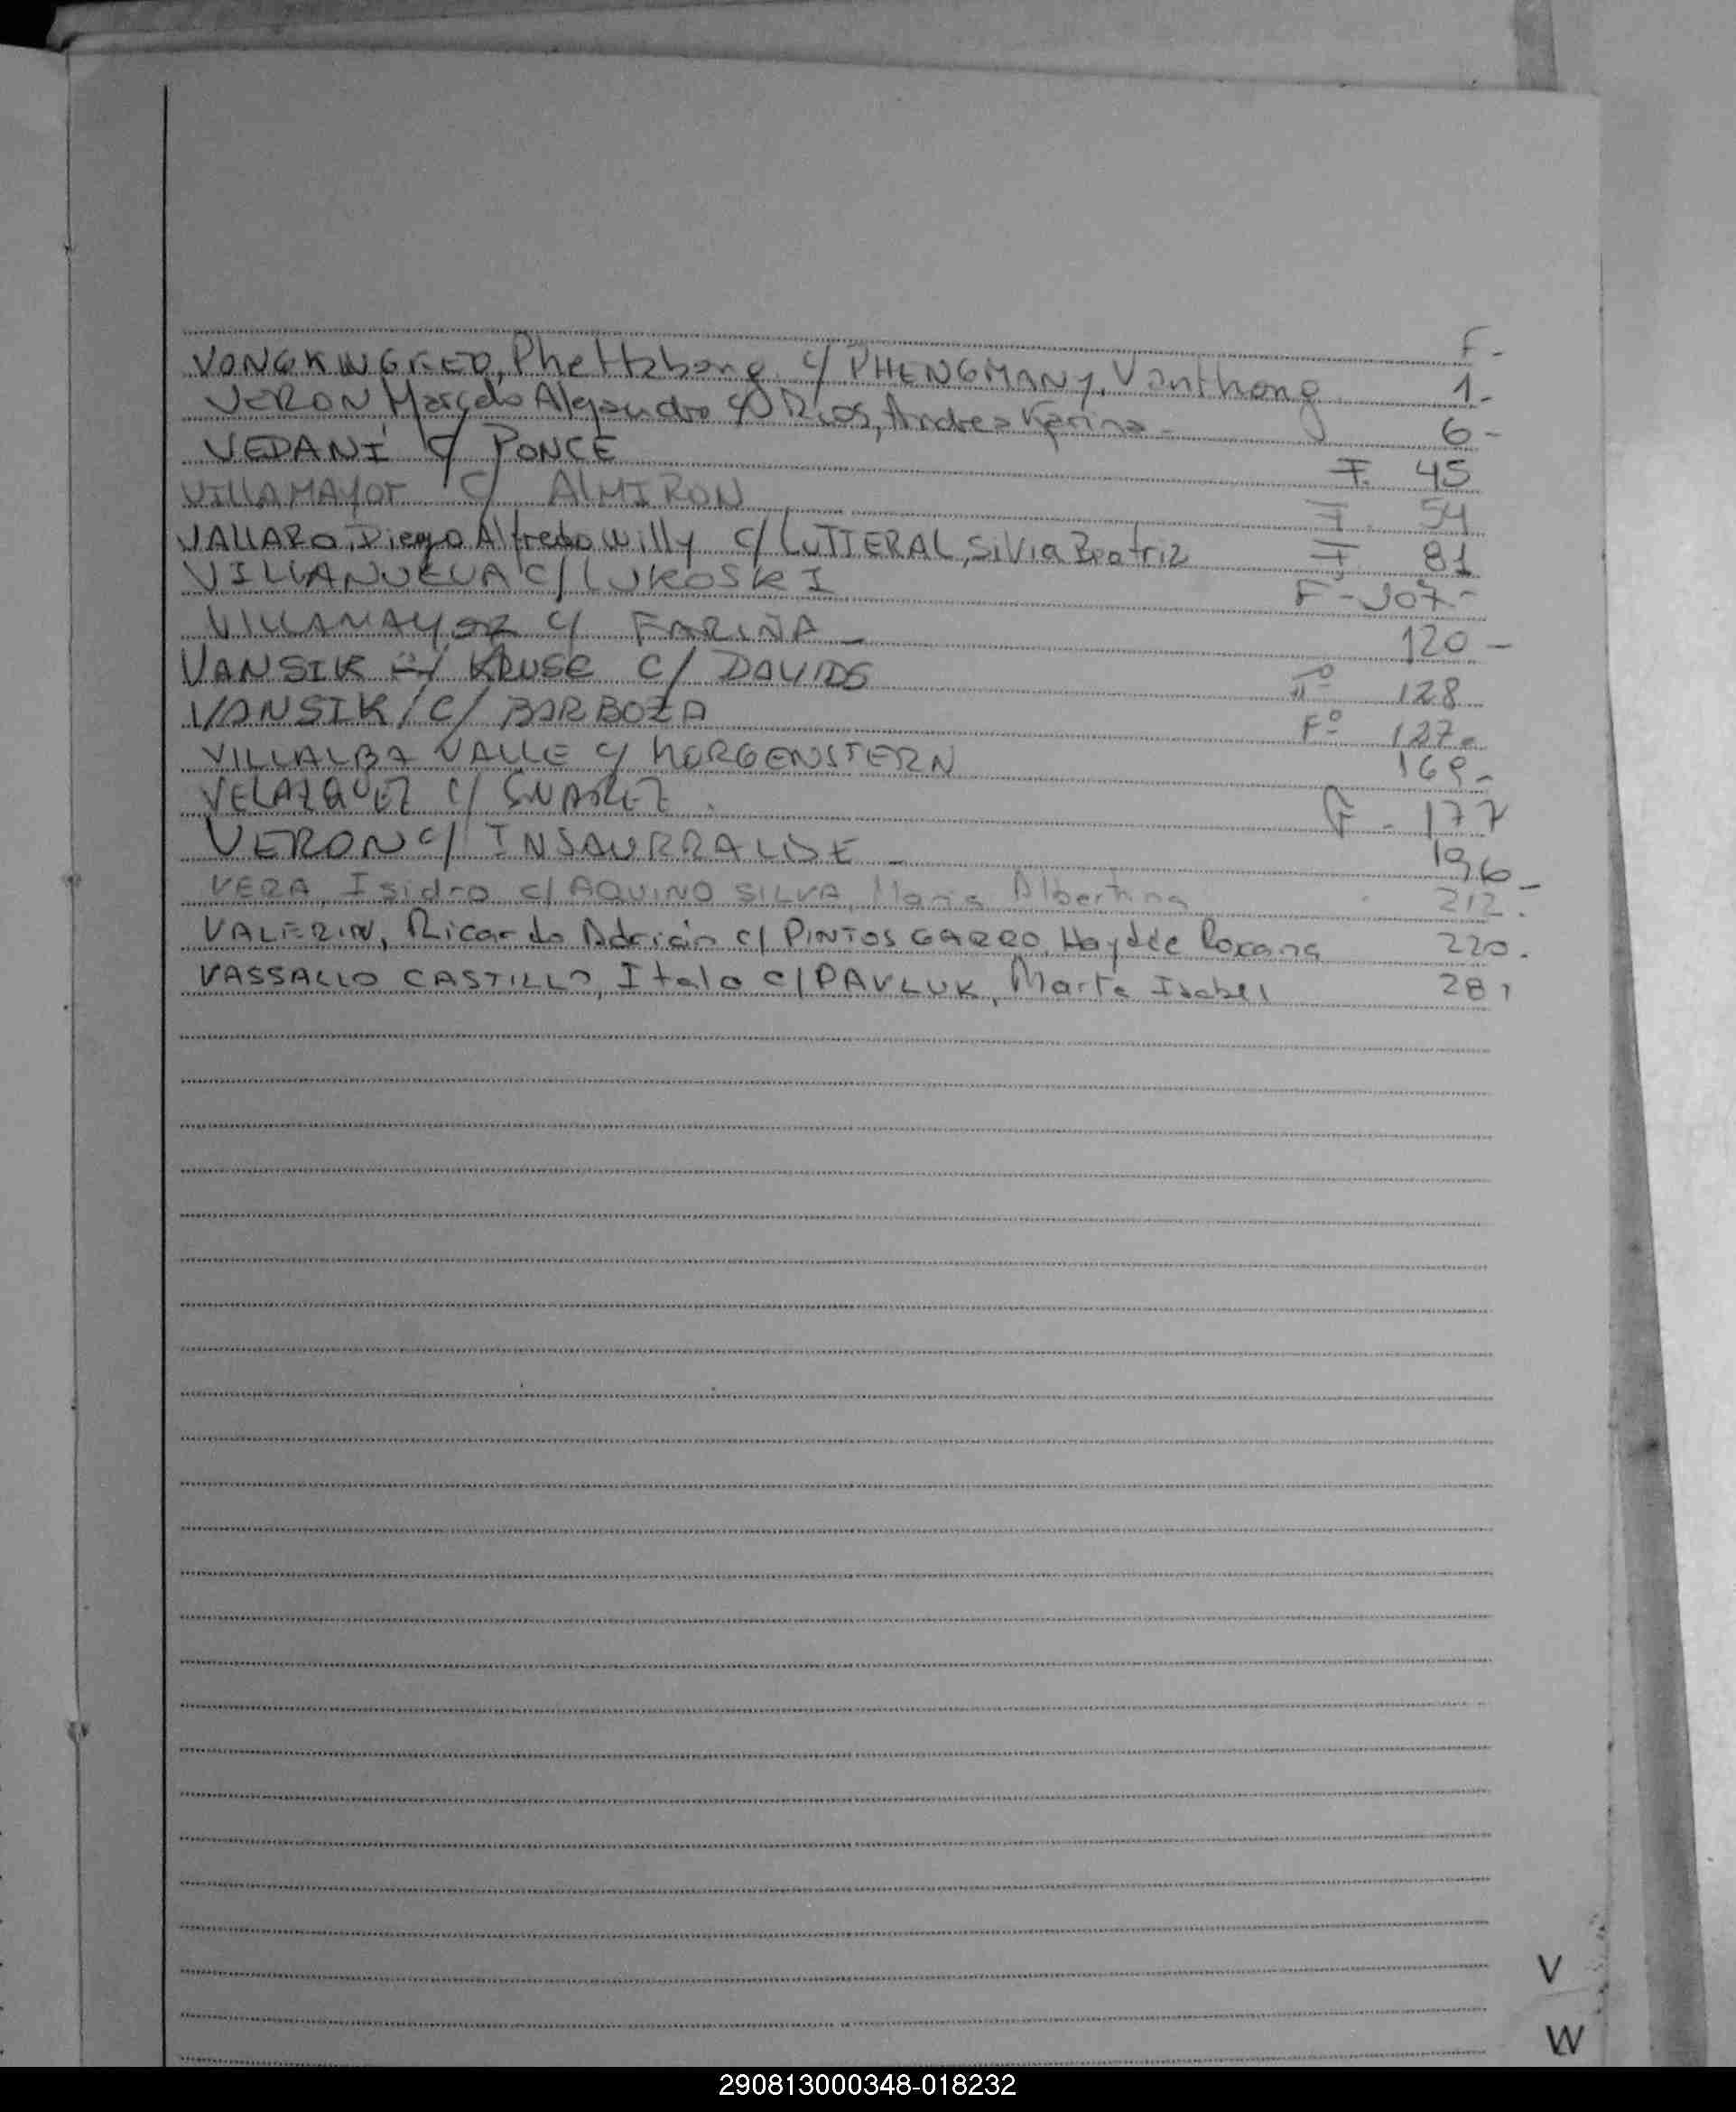 F-
VONGKINGKEO, Phettzbong c/ PHENGMANY, Vanthong 1-
VERON Marcelo Alejandro c/ RIOS, Andrea Karina - 6-
VEDANI c/ PONCE F. 45
VILLAMAYOR c/ ALMIRON F. 54
VALLARO, Diego Alfredo Willy c/ LUTTERAL, Silvia Beatriz F. 81
VILLANUEVA c/ LUKOSKI F-107-
VILLAMAYOR c/ FARIÑA - 120-
VANSIK KRUSE c/ DAVIDS Fº 128
VANSIK/C/ BARBOZA Fº 127-
VILLALBA VALLE c/ MORGENSTERN 169-
VELAZQUEZ c/ SUAREZ. F- 177
VERON c/ INSAURRALDE - 196-
VERA, Isidro c/ AQUINO SILVA, Maria Albertina 212.
VALERIN, Ricardo Adrián c/ PINTOS GARRO, Haydée Roxana 220.
VASSALLO CASTILLO, Italo c/ PAVLUK, Marta Isabel 281
V
W
290813000348-018232